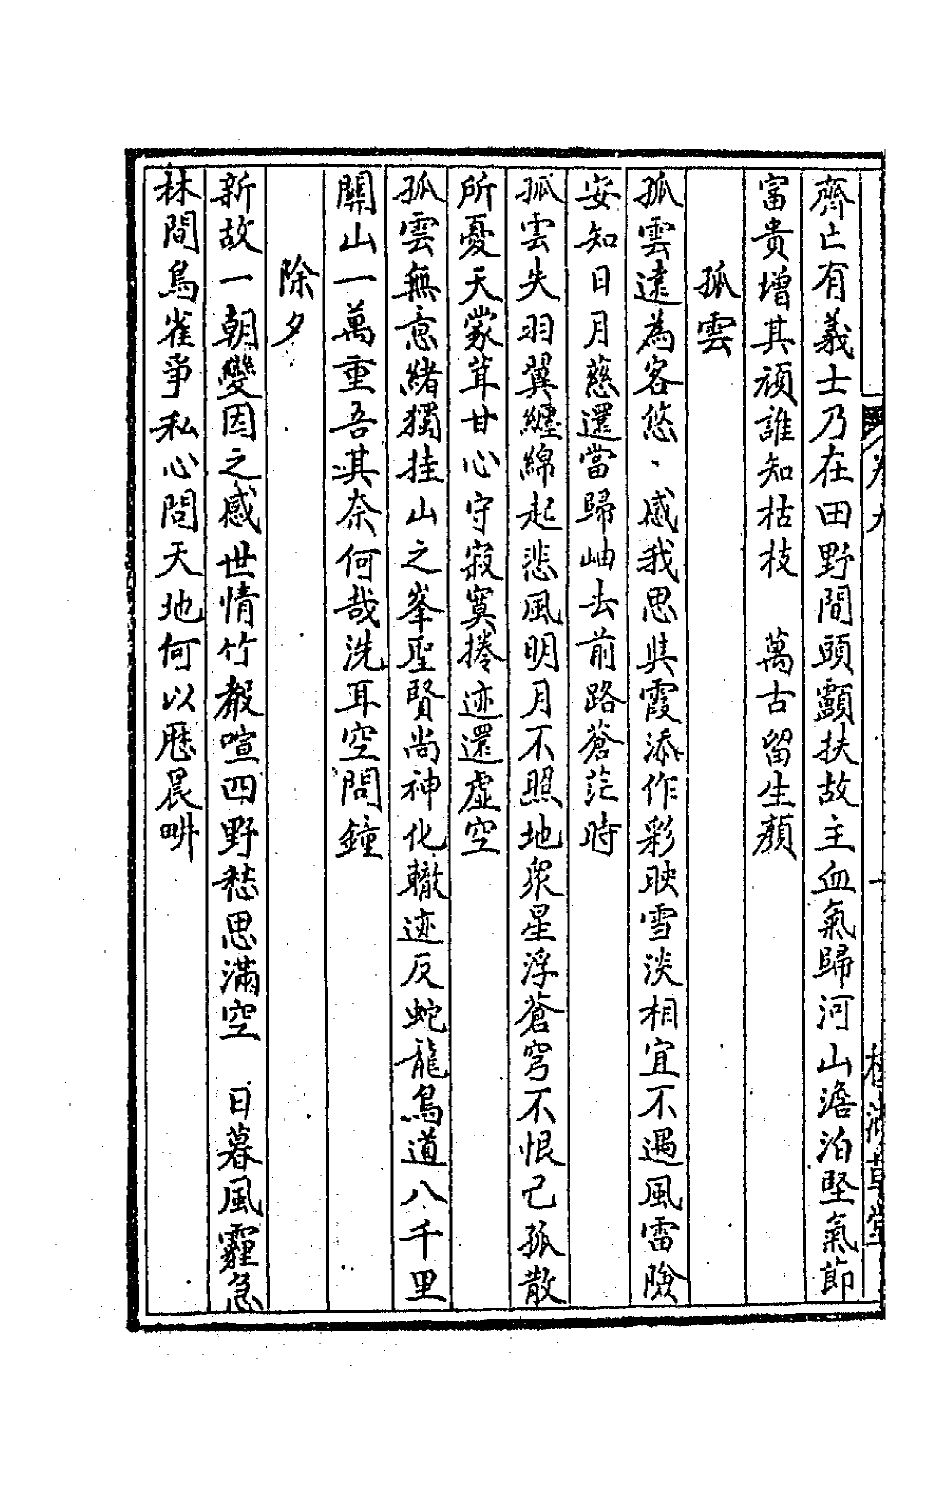 齊亡有義士乃在田野間頭顱扶故主血氣歸河山澹泊堅氣節
富貴增其頑誰知枯枝　萬古留生顏
孤雲
孤雲遠為客悠、感我思與霞添作彩映雪淡相宜不遇風雷險
安知日月慈還當歸岫去前路蒼茫時
孤雲失羽翼纏綿起悲風明月不照地衆星浮蒼穹不恨己孤散
所憂天蒙茸甘心守寂寞捲迹還虛空
孤雲無意緒獨挂山之峯聖賢尚神化轍迹反蛇龍鳥道八千里
關山一萬重吾其奈何哉洗耳空問鐘
除夕
新故一朝變因之感世情竹報喧四野愁思滿空　日暮風霾急
林間鳥雀爭私心問天地何以歷晨畊